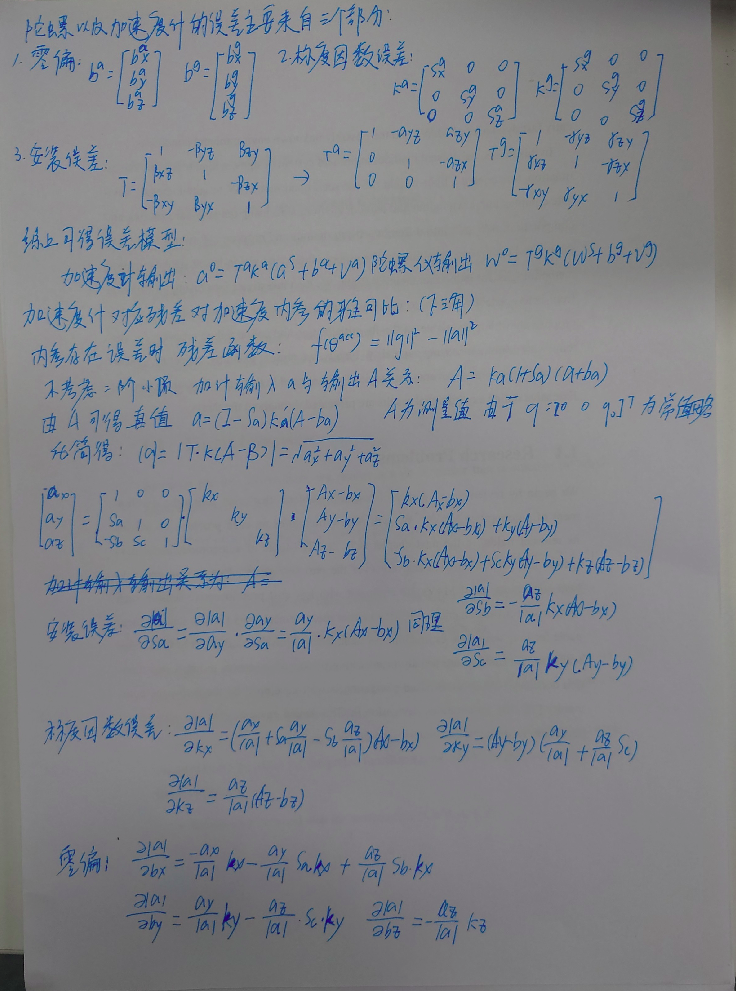 陀螺以及加速度计的误差主要来自三个部分:
1. 零偏: bᵃ = [bxᵃ byᵃ bzᵃ] bᵍ = [bxᵍ byᵍ bzᵍ] 2. 标度因数误差: Kᵃ = [Sxᵃ 0 0; 0 Syᵃ 0; 0 0 Szᵃ] Kᵍ = [Sxᵍ 0 0; 0 Syᵍ 0; 0 0 Szᵍ]
3. 安装误差: T = [1 -βyz βzy; βxz 1 -βzx; -βxy βyx 1] → Tᵃ = [1 -αyz αzy; 0 1 -αzx; 0 0 1] Tᵍ = [1 -γyz γzy; γxz 1 -γzx; -γxy γyx 1]
综上可得误差模型:
加速度计输出: a⁰ = TᵃKᵃ(aˢ+bᵃ+Vᵃ) 陀螺仪输出 W⁰ = TᵍKᵍ(Wˢ+bᵍ+Vᵍ)
加速度计对应残差对加速度内参的雅可比: (下三角)
内参存在误差时 残差函数: f(θᵃᶜᶜ) = ||g||² - ||a||²
不考虑二阶小项 加计输入a与输出A关系: A = Ka(1+Sa)(a+ba)
由A可得真值 a = (I-Sa)Ka'(A-ba) A为测量值 由于 g = [0 0 g₀]ᵀ 为常值略
化简得: |a| = |T·K(A-B)| = √(ax²+ay²+az²)
[ax ay az] = [1 0 0; Sa 1 0; -Sb Sc 1]·[kx ky kz]·[Ax-bx Ay-by Az-bz] = [kx(Ax-bx) Sa·kx(Ax-bx)+ky(Ay-by) -Sb·kx(Ax-bx)+Scky(Ay-by)+kz(Az-bz)]
加计输入输出关系为: A=
安装误差: ∂|a|/∂Sa = ∂|a|/∂ay · ∂ay/∂Sa = ay/|a| · kx(Ax-bx) 同理 ∂|a|/∂Sb = -az/|a| kx(Ax-bx)
∂|a|/∂Sc = az/|a| ky(Ay-by)
标度因数误差: ∂|a|/∂kx = (ax/|a| + Sa ay/|a| - Sb az/|a|)(Ax-bx) ∂|a|/∂ky = (Ay-by)(ay/|a| + az/|a| Sc)
∂|a|/∂kz = az/|a| (Az-bz)
零偏: ∂|a|/∂bx = -ax/|a| kx - ay/|a| Sakx + az/|a| Sb·kx
∂|a|/∂by = ay/|a| ky - az/|a| · Sc·ky ∂|a|/∂bz = -az/|a| kz